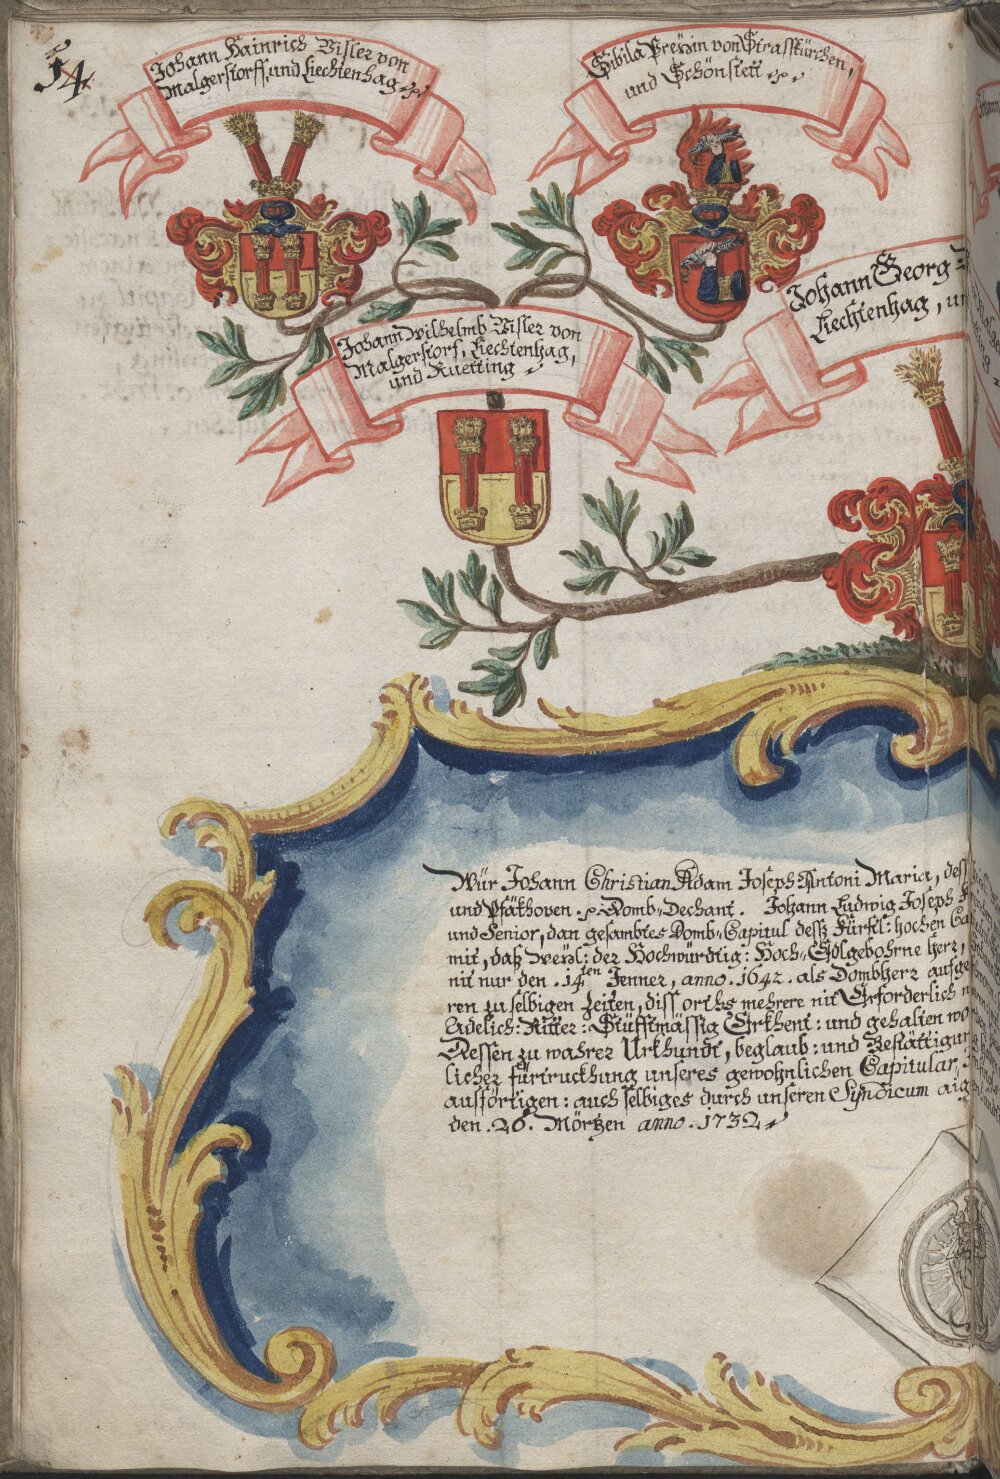 54
Johann Hainrich Visler von
Malgerstorff, und Liechtenhag
Sibila Preÿin von Strasskürchen,
und Schönstett
Johann Georg
Liechtenhag,
Johann Wilhelmb Visler von
Malgerstorf, Liechtenhag,
und Ruetting
Wür Johann Christian Adam Joseph Antoni Maria, dess
und Pfäthoven Domb-Dechant. Johann Ludwig Joseph
und Senior, dan gesambtes Domb-Capitul dess Fürstl: hochen
mit, daß weÿl: der Hochwürdtig: Hoch-Edlgebohrne Herr,
nit nur den .14ten Jenner, anno. 1642. als Dombherr
ren zu selbigen Zeiten, diss orths mehrere nit Erforderlich
Adelich: Ritter: Stüfftmässig Erkhent: und gehalten
Dessen zu wahrer Urkhundt, beglaub: und Bestättigung
licher fürtruckhung unseres gewohnlichen Capitular,
ausförtigen: auch selbiges durch unseren Syndicum
den .26. Mörtzen anno. 1732